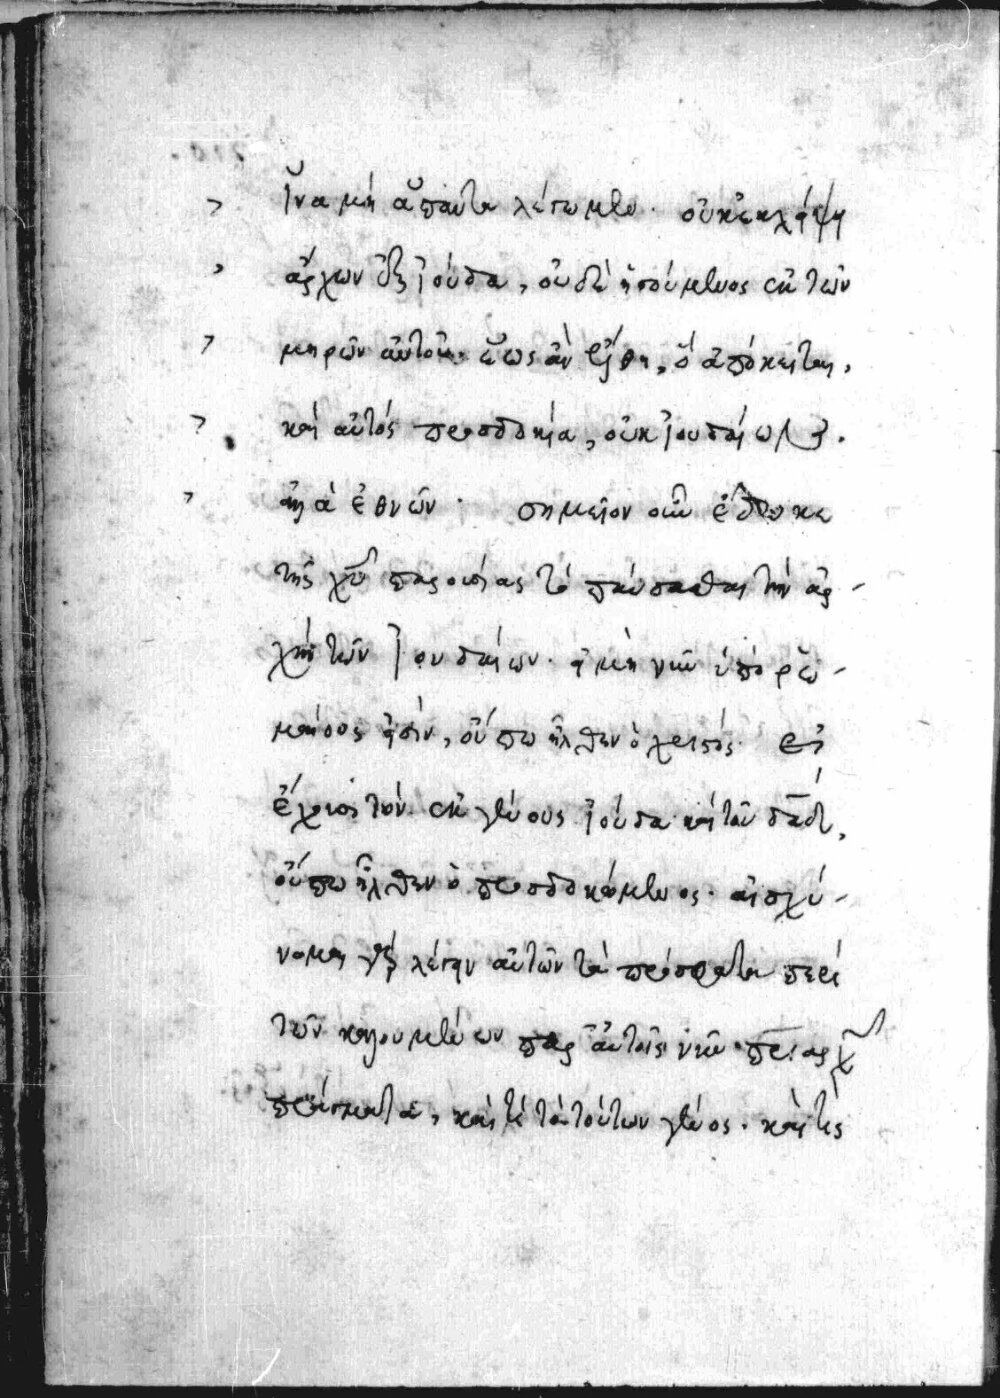 ἵνα μὴ ἅπαντα λέγωμεν. οὐκ ἐκλήψη
ἄρχων ἐξ ἰούδα, οὐδὲ ἡγούμενος ἐκ τῶν
μηρῶν αὐτοῦ. ἕως ἂν ἔλθη, ὃ ἀπόκειται,
καὶ αὐτὸς προσδοκία, οὐκ ἰουδαίων.
ἀλλὰ ἐθνῶν. σημεῖον οὖν ἔδωκε
τῆς χῦ παρουσίας τὸ παύσασθαι τὴν ἀρ-
χὴν τῶν ἰουδαίων. εἰ μὴ νῦν ὑπὸ ρω-
μαίοις εἰσὶν, οὔπω ἦλθεν ὁ χριστός. εἰ
ἔχουσι τὸν ἐκ γένους ἰούδα καὶ τοῦ δαδ,
οὔπω ἦλθεν ὁ προσδοκώμενος. αἰσχύ-
νομαι γὰρ λέγειν αὐτῶν τὰ πρόσφατα περὶ
τῶν καλουμένων παρ' αὐτοῖς νῦν πατριαρχῶν
πράγματα, καὶ τί τὸ τούτων γένος. καὶ τίς